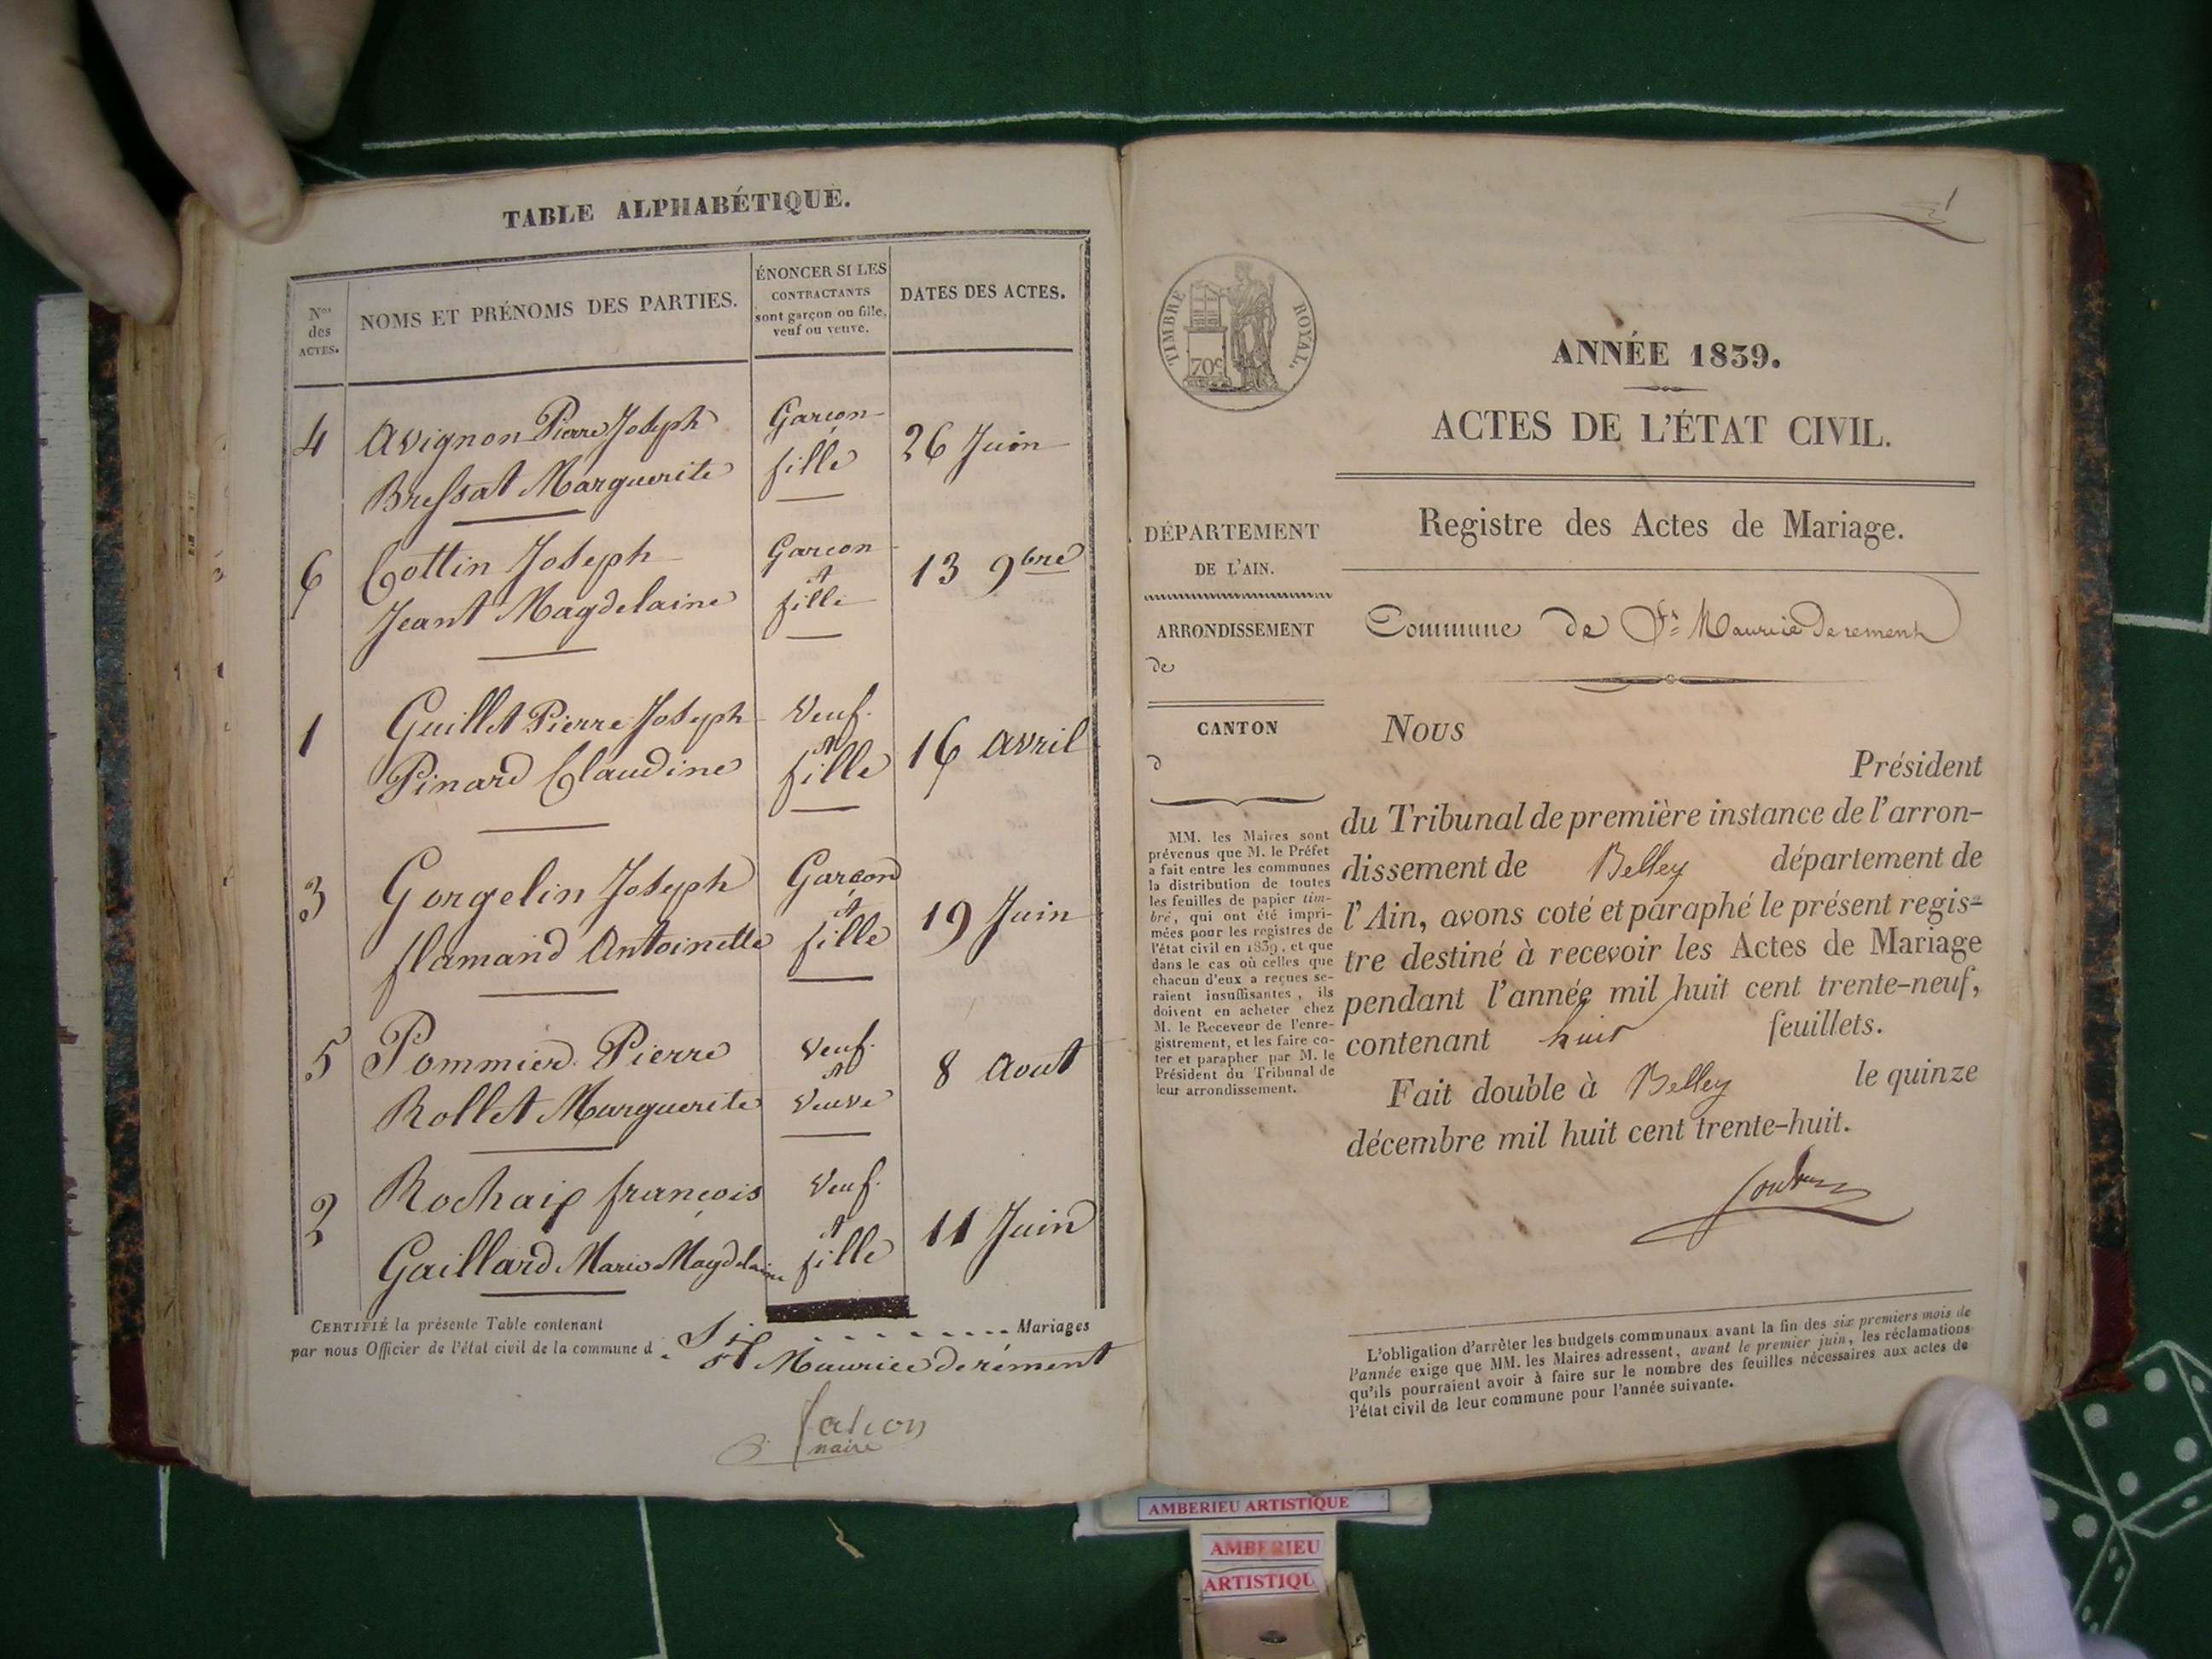 TABLE ALPHABÉTIQUE.
Nos des ACTES.
NOMS ET PRÉNOMS DES PARTIES.
ÉNONCER SI LES
CONTRACTANTS
sont garçon ou fille,
veuf ou veuve.
DATES DES ACTES.
4 Avignon Pierre Joseph Garçon 26 Juin
Bressat Marguerite fille
6 Cottin Joseph Garçon 13 9bre
et
Jeant Magdelaine fille
1 Guillet Pierre Joseph Veuf. 16 Avril
et
Pinard Claudine fille
3 Gorgelin Joseph Garçon 19 Juin
et
flamand Antoinette fille
5 Pommier Pierre Veuf. 8 Aout
et
Rollet Marguerite Veuve
2 Rochaix françois Veuf. 11 Juin
et
Gaillard Marie Magdelaine fille
CERTIFIÉ la présente Table contenant Six Mariages
par nous Officier de l'état civil de la commune d St Maurice de rément
maire
1
TIMBRE ROYAL.
70c
ANNÉE 1839.
ACTES DE L'ÉTAT CIVIL.
Registre des Actes de Mariage.
DÉPARTEMENT
DE L'AIN.
ARRONDISSEMENT
de
CANTON
d
MM. les Maires sont
prévenus que M. le Préfet
a fait entre les communes
la distribution de toutes
les feuilles de papier tim-
bré, qui ont été impri-
mées pour les registres de
l'état civil en 1839, et que
dans le cas où celles que
chacun d'eux a reçues se-
raient insuffisantes, ils
doivent en acheter chez
M. le Receveur de l'enre-
gistrement, et les faire co-
ter et parapher par M. le
Président du Tribunal de
leur arrondissement.
Commune de St Maurice de rement
Nous
Président
du Tribunal de première instance de l'arron-
dissement de Belley département de
l'Ain, avons coté et paraphé le présent regis-
tre destiné à recevoir les Actes de Mariage
pendant l'année mil huit cent trente-neuf,
contenant huit feuillets.
Fait double à Belley le quinze
décembre mil huit cent trente-huit.
L'obligation d'arrêter les budgets communaux avant la fin des six premiers mois de
l'année exige que MM. les Maires adressent, avant le premier juin, les réclamations
qu'ils pourraient avoir à faire sur le nombre des feuilles nécessaires aux actes de
l'état civil de leur commune pour l'année suivante.
AMBERIEU ARTISTIQUE
AMBERIEU
ARTISTIQU